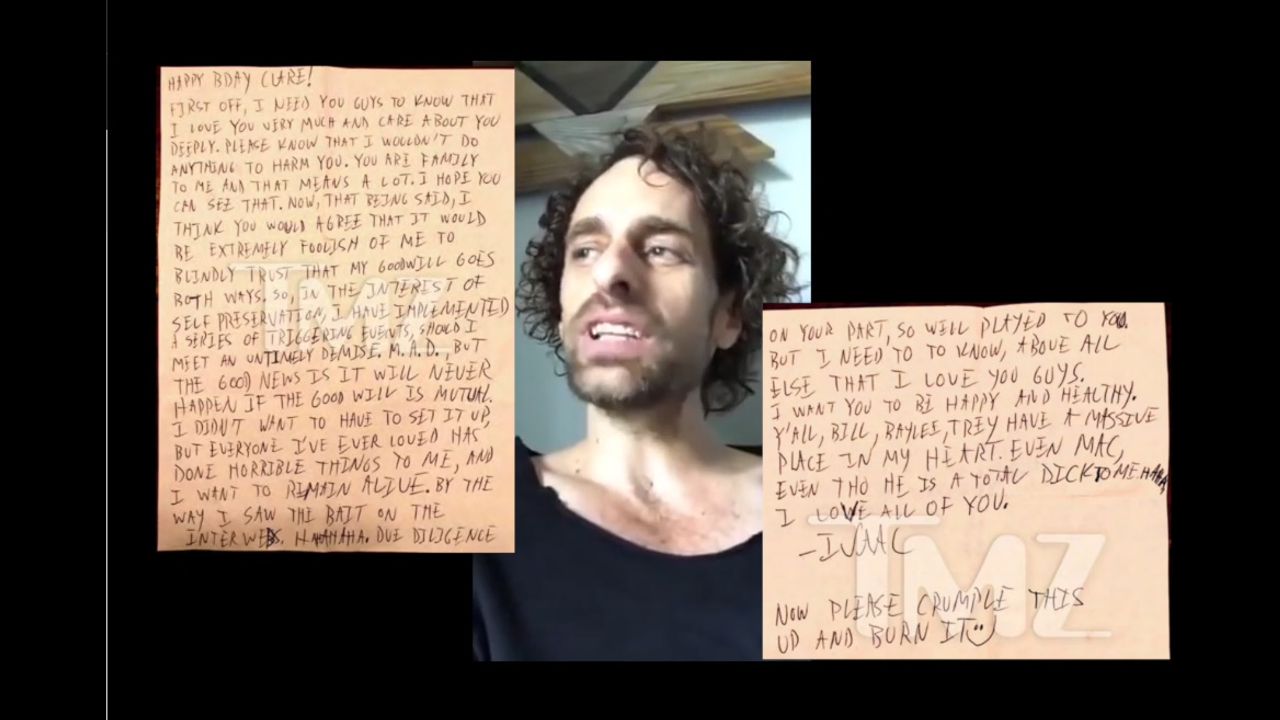 HAPPY BDAY CLARE!
FIRST OFF, I NEED YOU GUYS TO KNOW THAT
I LOVE YOU VERY MUCH AND CARE ABOUT YOU
DEEPLY. PLEASE KNOW THAT I WOULDN'T DO
ANYTHING TO HARM YOU. YOU ARE FAMILY
TO ME AND THAT MEANS A LOT. I HOPE YOU
CAN SEE THAT. NOW, THAT BEING SAID, I
THINK YOU WOULD AGREE THAT IT WOULD
BE EXTREMELY FOOLISH OF ME TO
BLINDLY TRUST THAT MY GOODWILL GOES
BOTH WAYS. SO, IN THE INTEREST OF
SELF PRESERVATION, I HAVE IMPLEMENTED
A SERIES OF TRIGGERING EVENTS, SHOULD I
MEET AN UNTIMELY DEMISE. M.A.D., BUT
THE GOOD NEWS IS IT WILL NEVER
HAPPEN IF THE GOOD WILL IS MUTUAL.
I DIDN'T WANT TO HAVE TO SET IT UP,
BUT EVERYONE I'VE EVER LOVED HAS
DONE HORRIBLE THINGS TO ME, AND
I WANT TO REMAIN ALIVE. BY THE
WAY I SAW THE BAIT ON THE
INTERWEBS. HAHAHAHA. DUE DILIGENCE
TMZ
ON YOUR PART, SO WILL PLAYED TO YOU.
BUT I NEED TO TO KNOW, ABOVE ALL
ELSE THAT I LOVE YOU GUYS.
I WANT YOU TO BE HAPPY AND HEALTHY.
Y'ALL, BILL, BAYLEE, TREY HAVE A MASSIVE
PLACE IN MY HEART. EVEN MAC,
EVEN THO HE IS A TOTAL DICK TO ME. HAHA
I LOVE ALL OF YOU.
-ISAAC
NOW PLEASE CRUMPLE THIS
UP AND BURN IT
TMZ